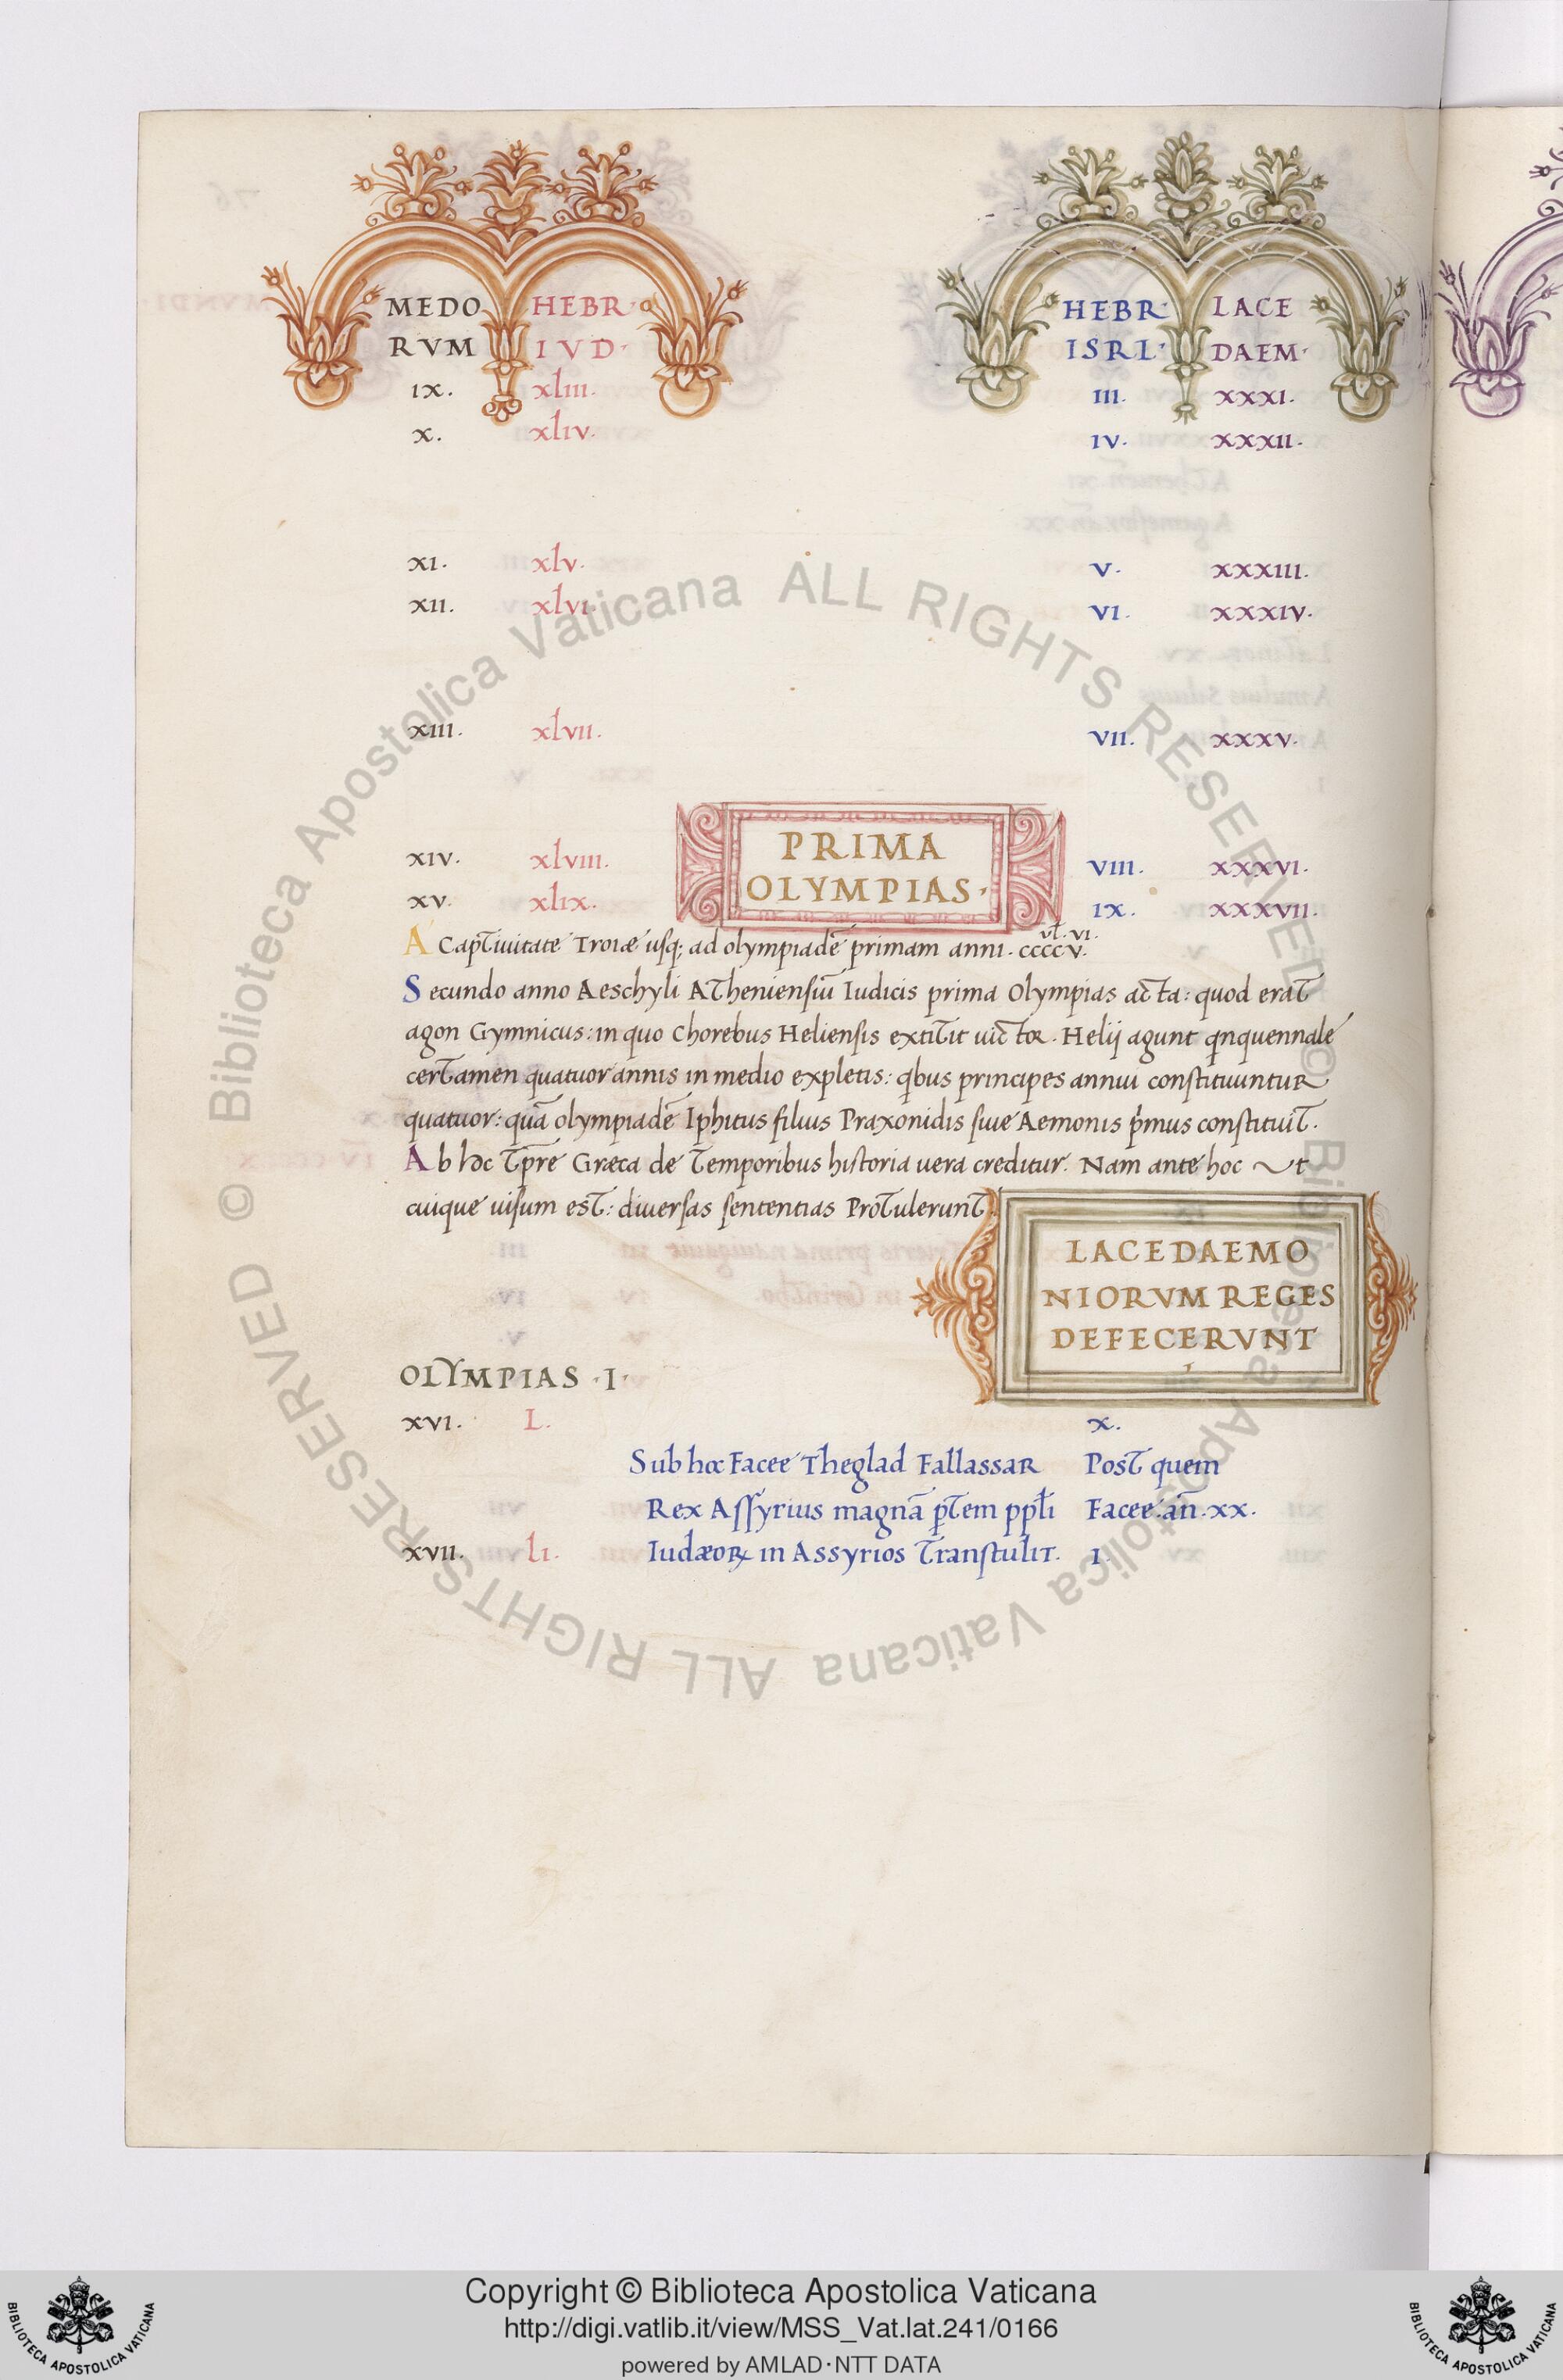 MEDO HEBR· HEBR· LACE
RVM IVD· ISRL· DAEM·
IX. xlIII. III. XXXI.
X. xlIV. IV. XXXII.
XI. xlV. V. XXXIII.
XII. xlVI. VI. XXXIV.
XIII. xlVII. VII. XXXV.
PRIMA
XIV. xlVIII. VIII. XXXVI.
OLYMPIAS·
XV. xlIX. IX. XXXVII.
vl̄. VI.
A Captiuitate Troiæ usq; ad olympiadē primam anni. CCCCV.
Secundo anno Aeschyli Atheniensiū Iudicis prima Olympias acta: quod erat
agon Gymnicus: in quo Chorebus Heliensis extitit uictor. Helij agunt qnquennale
certamen quatuor annis in medio expletis: qbus principes annui constituuntur
quatuor: quā olympiadē Iphitus filius Praxonidis siue Aemonis pͥmus constituit.
Ab hoc tp̄re Græca de temporibus historia uera creditur. Nam ante hoc Vt
cuique uisum est: diuersas sententias Protulerunt
LACEDAEMO
NIORVM REGES
DEFECERVNT
OLYMPIAS ·I·
XVI. L. X.
Sub hoc Facee Theglad Fallassar Post quem
Rex Assyrius magnā p̱tem ppl̄i Facee. an̄. XX.
XVII. lI. Iudæoꝝ in Assyrios Transtulit. I.
© Biblioteca Apostolica Vaticana ALL RIGHTS RESERVED
© Biblioteca Apostolica Vaticana ALL RIGHTS RESERVED
Copyright © Biblioteca Apostolica Vaticana
http://digi.vatlib.it/view/MSS_Vat.lat.241/0166
powered by AMLAD·NTT DATA
BIBLIOTECA APOSTOLICA VATICANA
BIBLIOTECA APOSTOLICA VATICANA